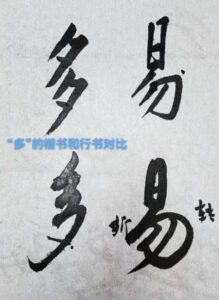 多 易
“多”的楷书和行书对比
多 易
折 转